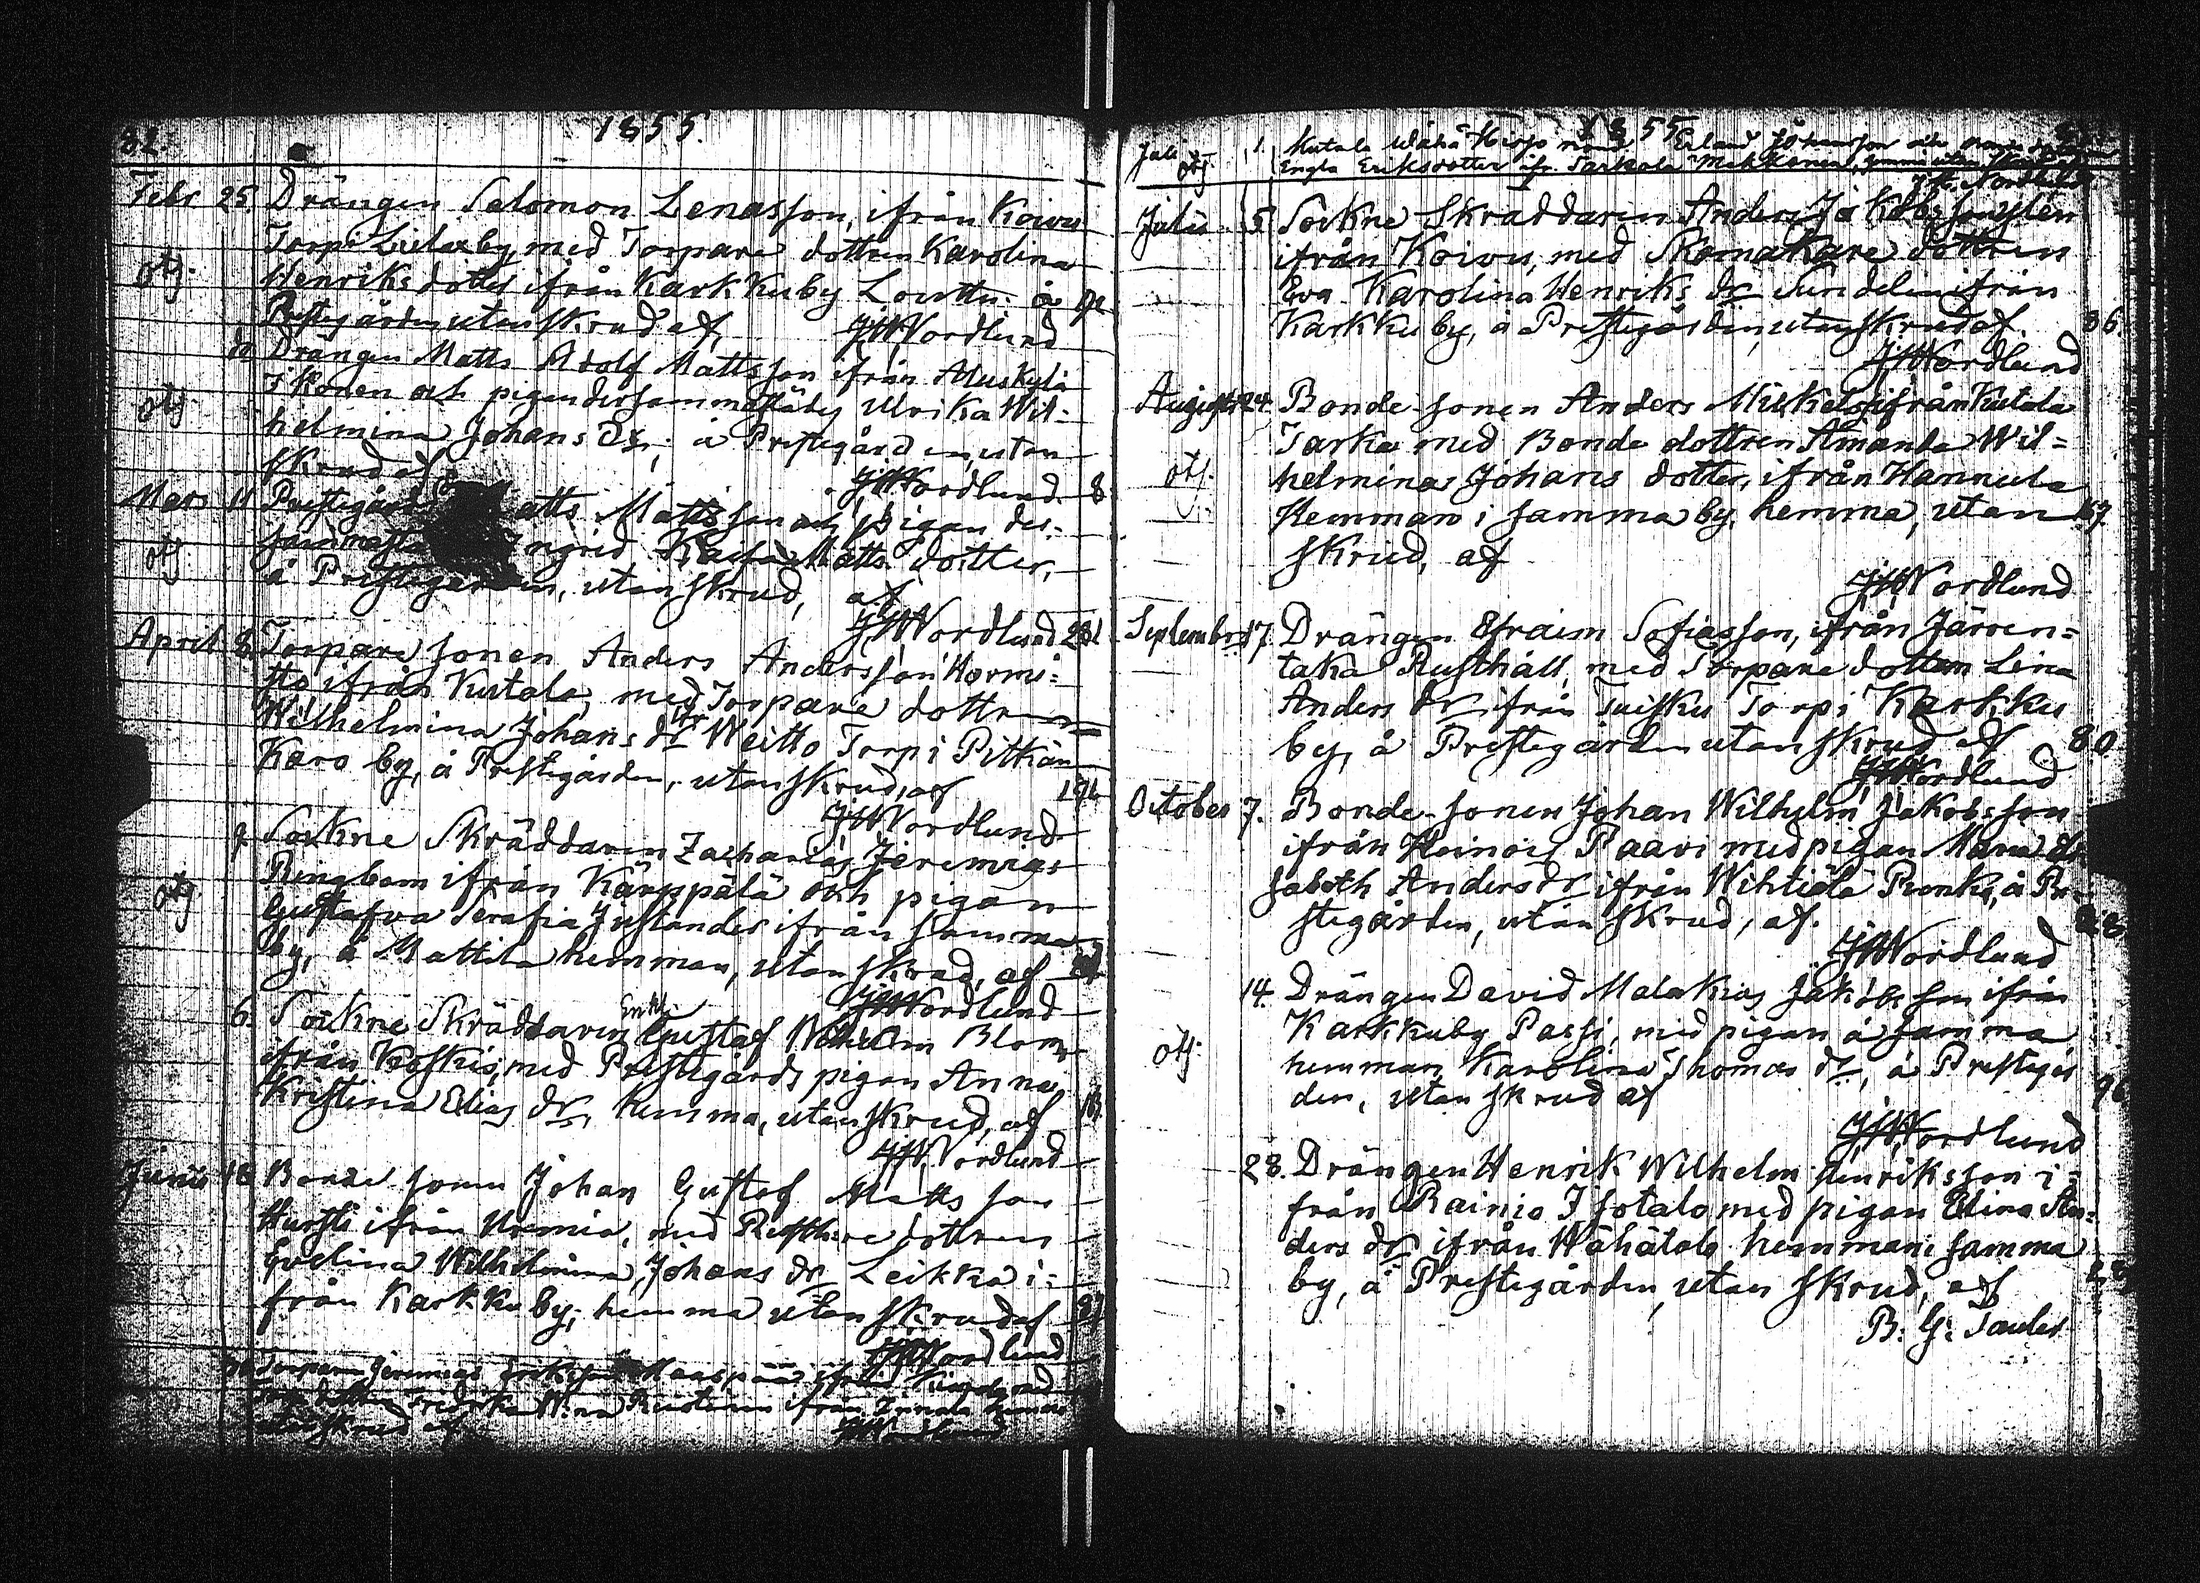 82.
1855.
Febr 25. Drängen Salomon Lenasson, ifrån Koivu
Torp Lielax by, med Torpare dottren Karolina
otj. Henriks dotter ifrån Karkku by Louttu. å
Prestegården utan skrud af,
JWNordlund
Drängen Matts Adolf Mattsson ifrån Aluskylä
Ikonen och pigan dersammastädes Ulrika Wil-
otj helmina Johans dr, å Prestegården, utan
skrud af
JWNordlund. 8
Mars 11 Prestegårds Matts Mattsson och pigan der-
sammasta Ingrid Kaisa Matts dotter,
otj å Prestegården, utan skrud, af
JWNordlund 231
April 8. Torpare sonen Anders Andersson Hormi-
sto ifrån Kutala, med Torpare dottren
Wilhelmina Johans dr Weitto Torp i Pitkän
Karo by, å Prestegården, utan skrud, af
JWNordlund
Sockne Skräddaren Zacharias Jeremias
Ringbom ifrån Kärppälä och pigan
otj Gustafva Serafia Justander ifrån samma
by, å Mattila hemman, utan skrud, af
JWNordlund
6. Sockne Skräddaren Enkl. Gustaf Wilhelm Blom
ifrån Koskis, med Prestegårds pigan Anna
Kristina Elias dr, hemma, utan skrud, af
JWNordlund
Junii 18 Bonde sonen Johan Gustaf Matts son
Hursti ifrån Heemia, med Rusth:re dottren
Evelina Wilhelmina Johans dr Leikka i-
från Karkku by; hemma utan skrud af
JWNordlund
Torparen Jeremias Eriksson
utan skrud af
JWNordlund
1855
Juli 1. Kutala Wähä Hirsjo Erland Johansson
otj. Engla Eriksdotter ifr. Sarkola hemma utan skrud af
JW. Nordlund
Julii 5 Sockne Skraddaren Anders Jakobsson Ylen
ifrån Koivu, med Skomakare dottren
Eva Karolina Henriks dr Sundelin ifrån
Karkku by, å Prestegården, utan skrud af. 86.
JWNordlund
August 24. Bonde sonen Anders Mickelss ifrån Kutala
Tarka med Bonde dottren Amanda Wil-
otj. helmina Johans dotter, ifrån Hannula
Hemman i samma by, hemma, utan 167
skrud, af
JWNordlund
September 17. Drängen Efraim Sofiasson, ifrån Järven-
taka Rusthåll, med Torpare dottren Lina
Anders dr ifrån Tuisku Torp i Karkku
by, å Prestegården utan skrud af 80
JWNordlund
October 7. Bonde sonen Johan Wilhelm Jakobsson
ifrån Heinois Paavi med pigan Maria Eli
sabeth Anders dr ifrån Wihtiälä Punka, å Pre-
stegården, utan skrud, af. 28
JWNordlund
14. Drängen David Malakias Jakobsson ifrån
Karkku by Passi, med pigan å samma
otj. hemman Karolina Thomas dr, å Prestegår
den, utan skrud af 96
JWNordlund
28. Drängen Henrik Wilhelm Henriksson i-
från Rainio Isotalo med pigan Elina An-
ders dr ifrån Wähätalo hemman i samma
by, å Prestegården, utan skrud, af
B: G: Tauler